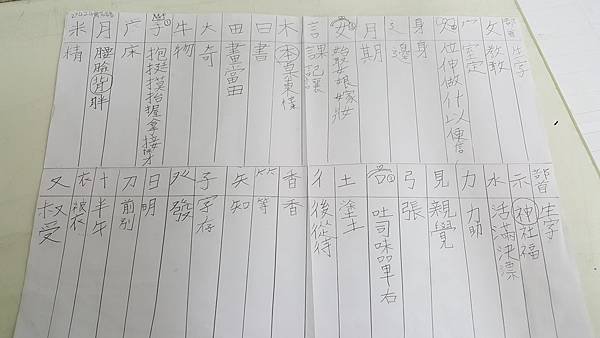 部首 生字
攵 教教
定
位伸做什以便信
身 身
辶 邊
月 期
女 始娶娘嫁妝
言 課記讓
木 本東樣
曰 書
田 畫當由
大 奇
牛 物
手 抱挺摸抬握拿接才
广 床
月 腰臉背胖
米 精
部首 生字
示 神社福
水 活滿決漂
力 力助
見 親覺
弓 張
口 吐司味品單右
土 塗土
彳 後從待
香 香
竹 等
矢 知
子 字存
癶 發
日 明
刀 前別
十 半午
衣 被衣
又 叔受